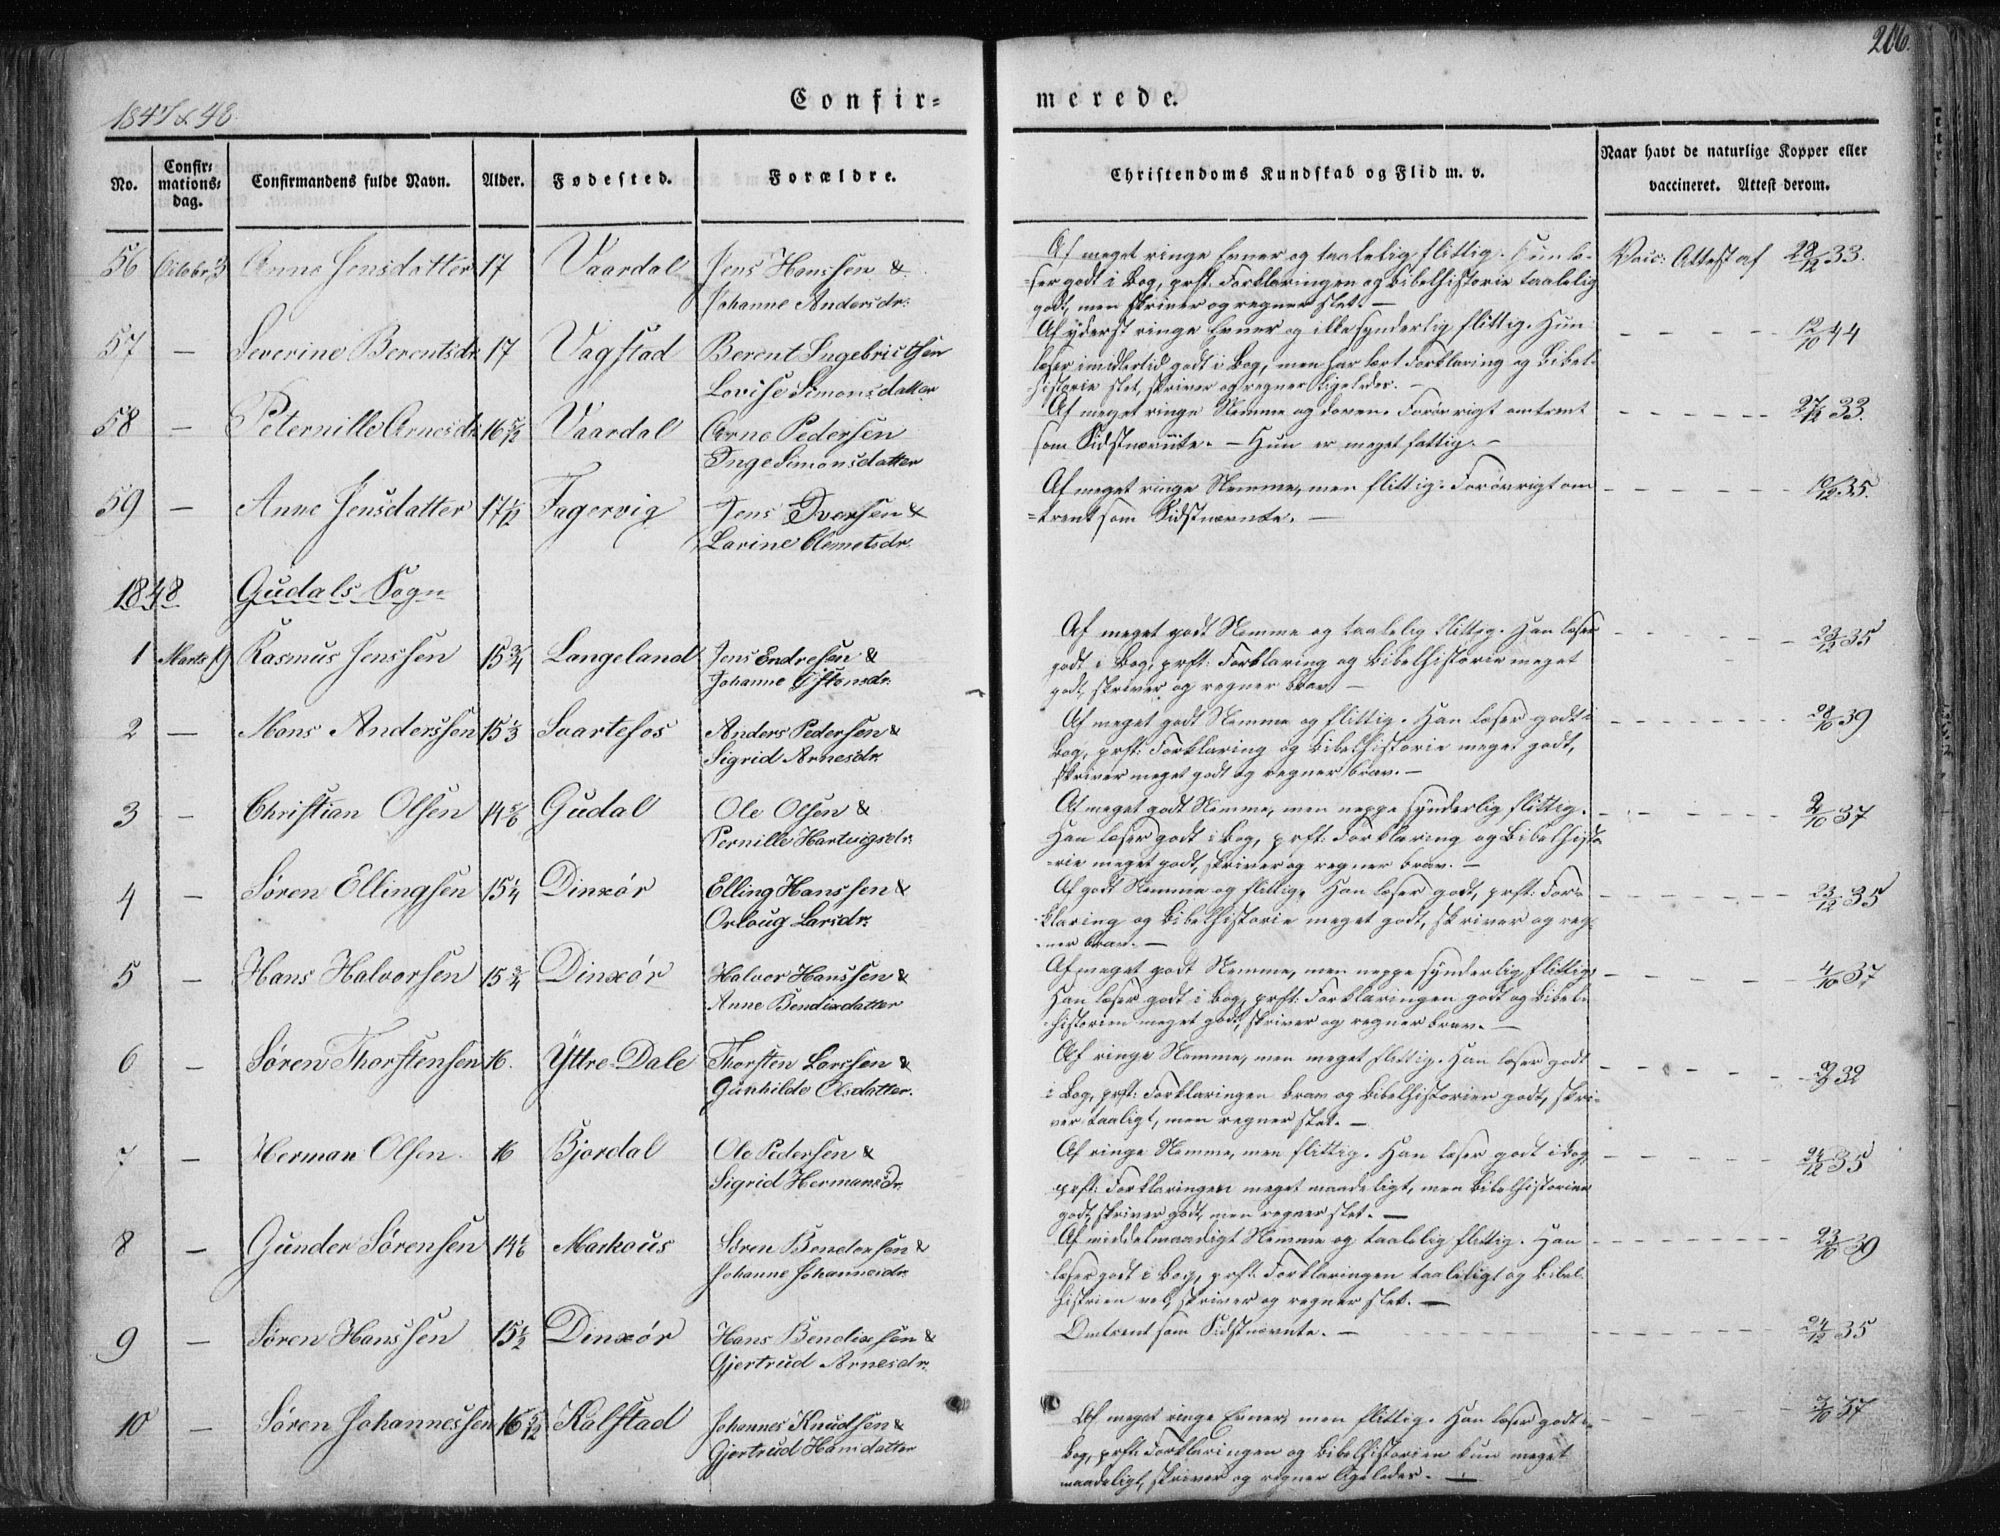 206.
1847 & 48.
Confir-
merede.
No.
Confir-
mations-
dag.
Confirmandens fulde Navn.
Alder.
Fødested.
Forældre.
Christendoms Kundskab og Flid m. v.
Naar havt de naturlige Kopper eller
vaccineret. Attest derom.
56 Octobr 3 Anna Jensdatter 17 Vaardal Jens Hanssen &
Johanne Andersdr:
Af meget ringe Evner og taalelig flittig. Hun læ-
=ser godt i Bog, prst: Forklaringen og Bibelhistorie taalelig
godt, men skriver og regner slet. —
Vacc: Attest af 28/12 33.
57 — Severine Berentsdr. 17 Vagstad Berent Ingebrigtsen
Lovise Simonsdatter
Af yderst ringe Evner og ikke synderlig flittig. Hun
læser imidlertid godt i Bog, men har lært Forklaring og Bibel-
historie slet, skriver og regner ligeledes. —
12/10 44
58 — Peternille Arnesdr. 16 5/12 Vaardal Arne Pedersen
Inge Simonsdatter
Af meget ringe Nemme og doven. Forøvrigt omtrent
som Sidstnævnte. — Hun er meget fattig. —
27/12 33.
59 — Anne Jensdatter 17 1/2 Fagervig Jens Iversen &
Larine Clemetsdr.
Af meget ringe Nemme, men flittig. Forøvrigt om
=trent som Sidstnævnte. —
10/12 35.
1848 Gudals Sogn
1 Marts Rasmus Jenssen 15 3/4 Langeland Jens Endresen &
Johanne Østensdr.
Af meget godt Nemme og taalelig flittig. Han læser
godt i Bog, prst: Forklaring og Bibelhistorie meget
godt, skriver og regner brav. —
23/12 35
2 — Mons Anderssen 15 1/3 Svartefos Anders Pedersen &
Sigrid Arnesdr.
Af meget godt Nemme og flittig. Han læser godt i
Bog, prst: Forklaring og Bibelhistorie meget godt,
skriver meget godt og regner brav. —
28/10 39
3 — Christian Olsen 14 5/6 Gudal Ole Olsen &
Pernille Hartvigsdr.
Af meget godt Nemme, men neppe synderlig flittig.
Han læser godt i Bog, prst: Forklaring og Bibelhisto
=rie meget godt, skriver og regner brav. —
2/10 37
4 — Søren Ellingsen 15 1/4 Dinxør Elling Hanssen &
Orloug Larsdr.
Af godt Nemme og flittig. Han læser godt, prst: For-
klaring og Bibelhistorie meget godt, skriver og reg-
=ner brav. —
23/12 35
5 — Hans Halvorsen 15 3/4 Dinxør Halvor Hanssen &
Anne Bendixdatter
Af meget godt Nemme, men neppe synderlig flittig,
Han læser godt i Bog, prst: Forklaringen godt og Bibel-
historien meget godt, skriver og regner brav. —
4/10 37
6 — Søren Thorstensen 16. Yttre-Dale Thorsten Larssen &
Gunhilde Olsdatter.
Af ringe Nemme, men meget flittig. Han læser godt
i Bog, prst: Forklaringen brav og Bibelhistorien godt, skri-
ver taaligt, men regner slet. —
32
7 — Herman Olsen. 16 Bjordal Ole Pedersen &
Sigrid Hermansdr.
Af ringe Nemme, men flittig. Han læser godt i Bog,
prst: Forklaringen meget maadeligt, men Bibelhistorien
godt, skriver godt, men regner slet. —
24/12 35
8 — Gunder Sørensen 14 1/6 Markous Søren Bendersen &
Johanne Johannesdr.
Af middelmaadigt Nemme og taalelig flittig. Han
læser godt i Bog, prst: Forklaringen taaleligt og Bibel-
histrien vel, skriver og regner slet. —
23/10 39
9 — Søren Hanssen 15 1/2 Dinxør Hans Bendixsen &
Gjertrud Arnesdr.
Omtrent som Sidstnævnte. —
24/12 35
10 — Søren Johannessen 16 5/12 Kalstad Johannes Knudsen &
Gjertrud Hansdatter
Af meget ringe Evner, men flittig. Han læser godt i
Bog, prst: Forklaringen og Bibelhistorien kun meget
maadeligt, skriver og regner ligeledes. —
3/10 37